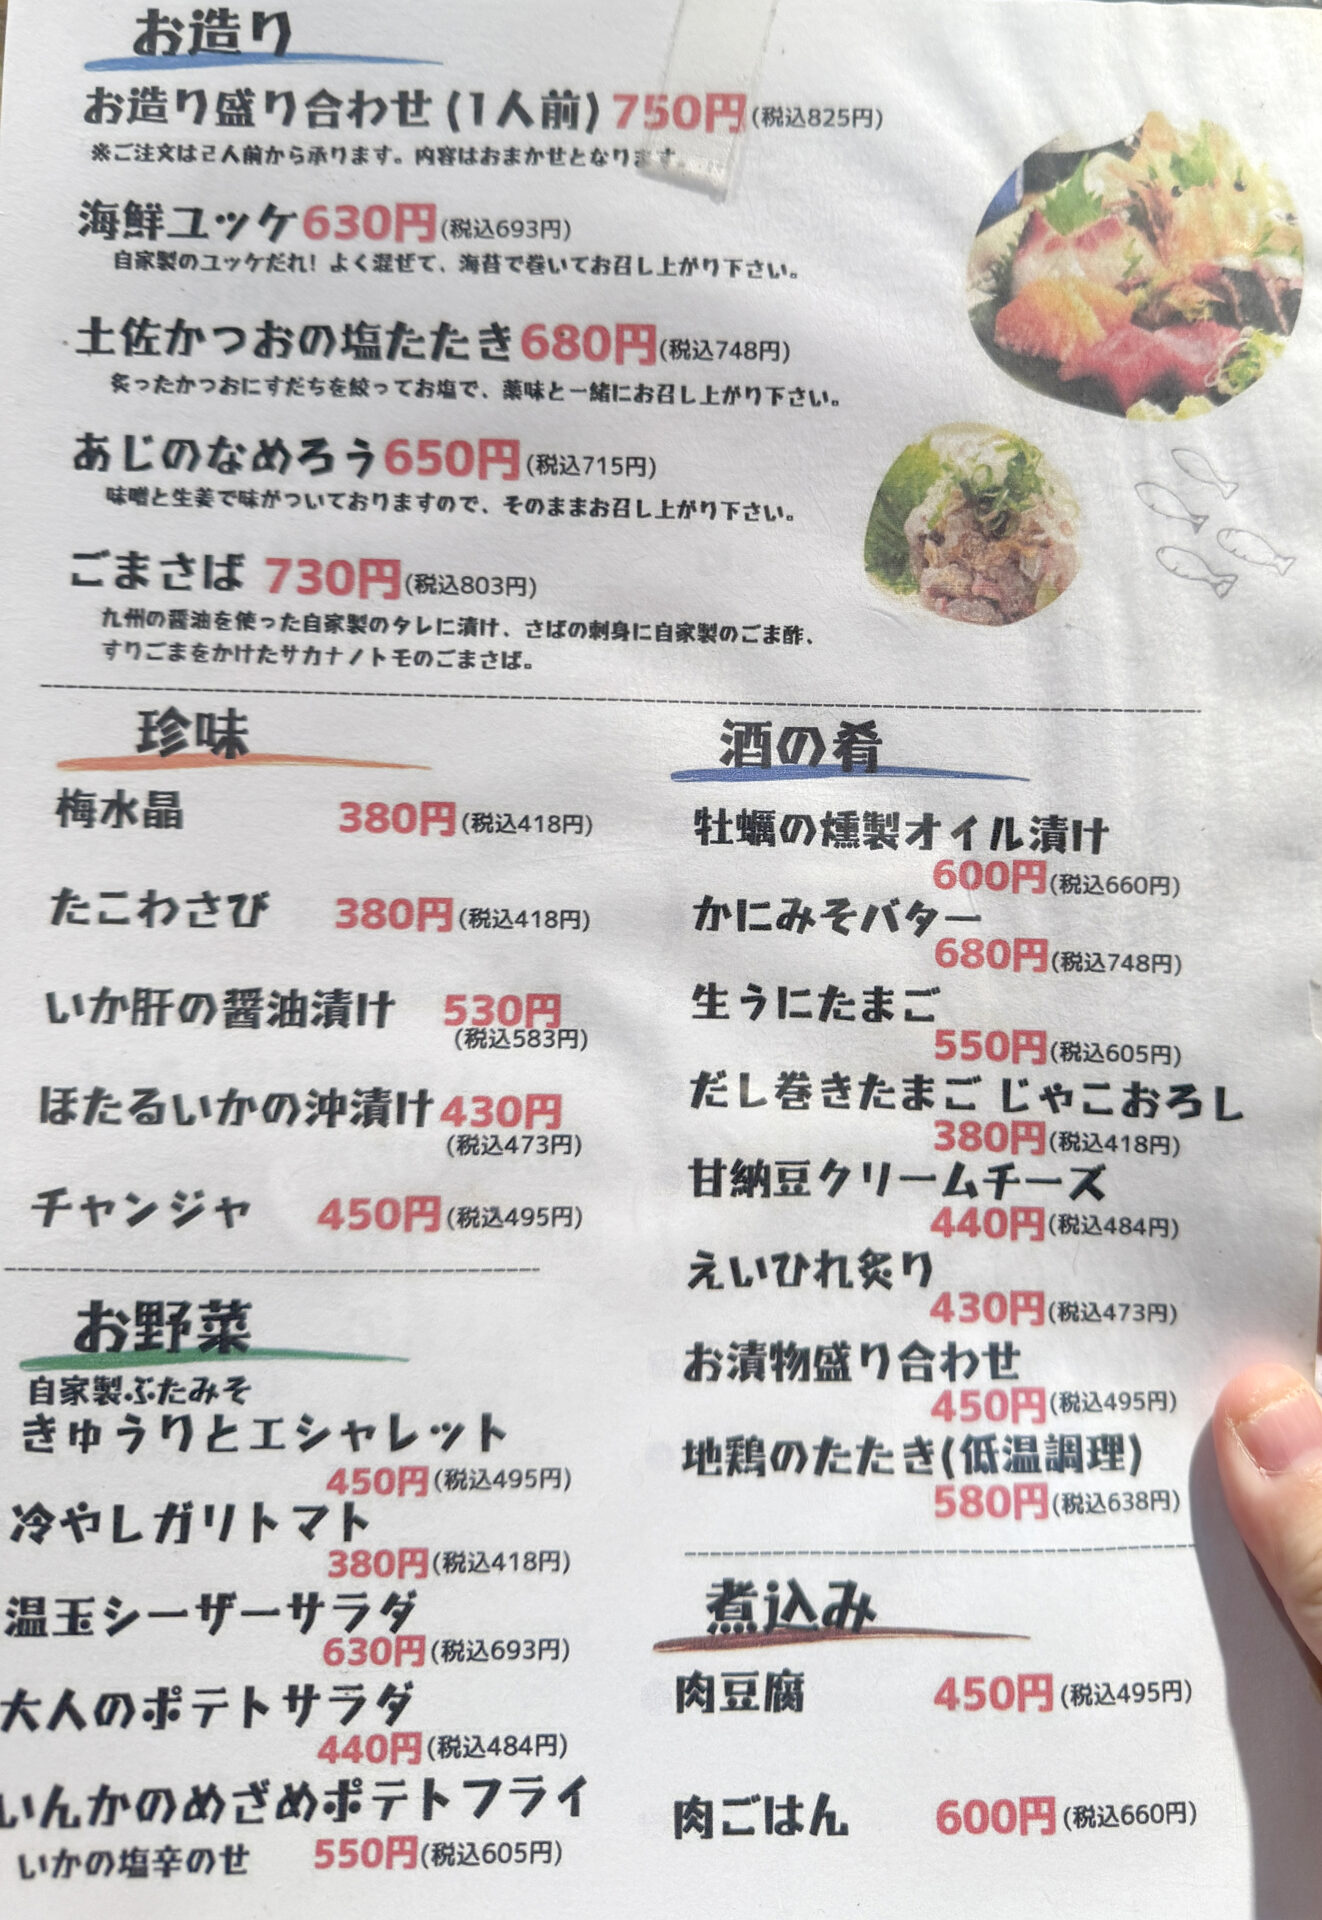 お造り
お造り盛り合わせ(1人前) 750円(税込825円)
※ご注文は2人前から承ります。内容はおまかせとなります。
海鮮ユッケ630円(税込693円)
自家製のユッケだれ!よく混ぜて、海苔で巻いてお召し上がり下さい。
土佐かつおの塩たたき680円(税込748円)
炙ったかつおにすだちを絞ってお塩で、薬味と一緒にお召し上がり下さい。
あじのなめろう650円(税込715円)
味噌と生姜で味がついておりますので、そのままお召し上がり下さい。
ごまさば 730円(税込803円)
九州の醤油を使った自家製のタレに漬け、さばの刺身に自家製のごま酢、
すりごまをかけたサカナノトモのごまさば。
珍味
梅水晶 380円(税込418円)
たこわさび 380円(税込418円)
いか肝の醤油漬け 530円
(税込583円)
ほたるいかの沖漬け430円
(税込473円)
チャンジャ 450円(税込495円)
お野菜
自家製ぶたみそ
きゅうりとエシャレット
450円(税込495円)
冷やしガリトマト
380円(税込418円)
温玉シーザーサラダ
630円(税込693円)
大人のポテトサラダ
440円(税込484円)
いんかのめざめポテトフライ
いかの塩辛のせ 550円(税込605円)
酒の肴
牡蠣の燻製オイル漬け
600円(税込660円)
かにみそバター
680円(税込748円)
生うにたまご
550円(税込605円)
だし巻きたまご じゃこおろし
380円(税込418円)
甘納豆クリームチーズ
440円(税込484円)
えいひれ炙り
430円(税込473円)
お漬物盛り合わせ
450円(税込495円)
地鶏のたたき(低温調理)
580円(税込638円)
煮込み
肉豆腐 450円(税込495円)
肉ごはん 600円(税込660円)